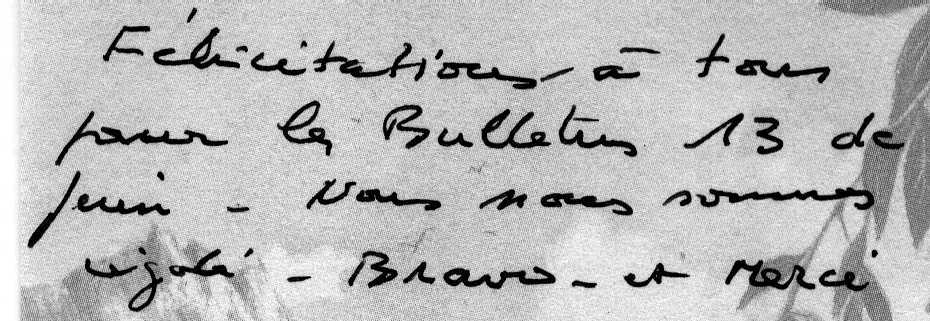 Félicitations à tous
pour le Bulletin 13 de
juin - Nous nous sommes
régalé - Bravo - et Merci